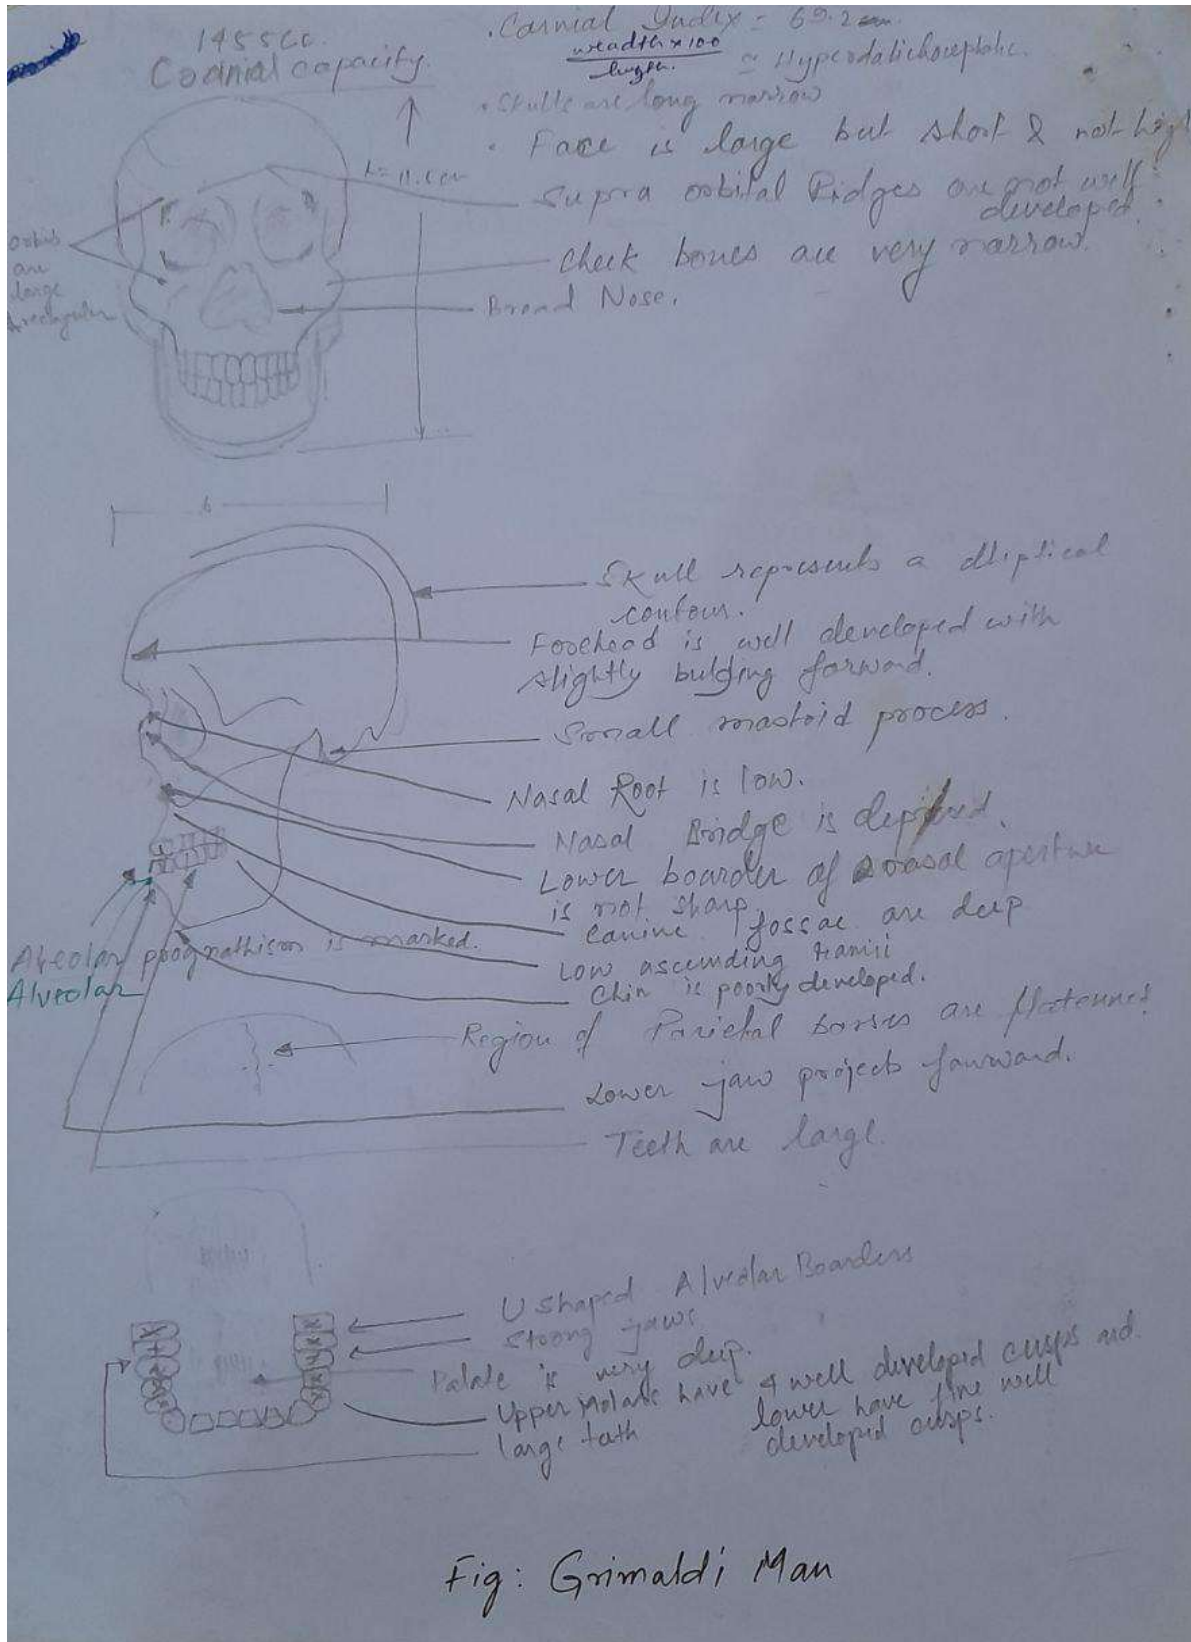 1455cc.
Cranial capacity.
. Carnial Index = 69.2 cm.
weadth x 100
length.
≈ Hyperdolichocephalic.
. Skulls are long narrow
. Face is large but short & not high
h = 11.6 cm
Supra orbital Ridges are not well
developed.
orbits
are
large
& rectangular
cheek bones are very narrow.
Broad Nose.
b
Skull represents a elliptical
contour.
Forehead is well developed with
slightly buldging forward.
Small mastoid process.
Nasal Root is low.
Nasal Bridge is depressed.
Lower boarder of nasal aperture
is not sharp
Canine fossae are deep
Alveolar prognathism is marked.
Alveolar
Low ascending Ramii
Chin is poorly developed.
Region of Parietal bosses are flatennes
Lower jaw projects farward.
Teeth are large.
U shaped Alveolar Boarders
Strong jaws
Palate is very deep.
Upper Molars have 4 well developed cusps and
lower have five well
developed cusps.
large teeth
Fig: Grimaldi Man